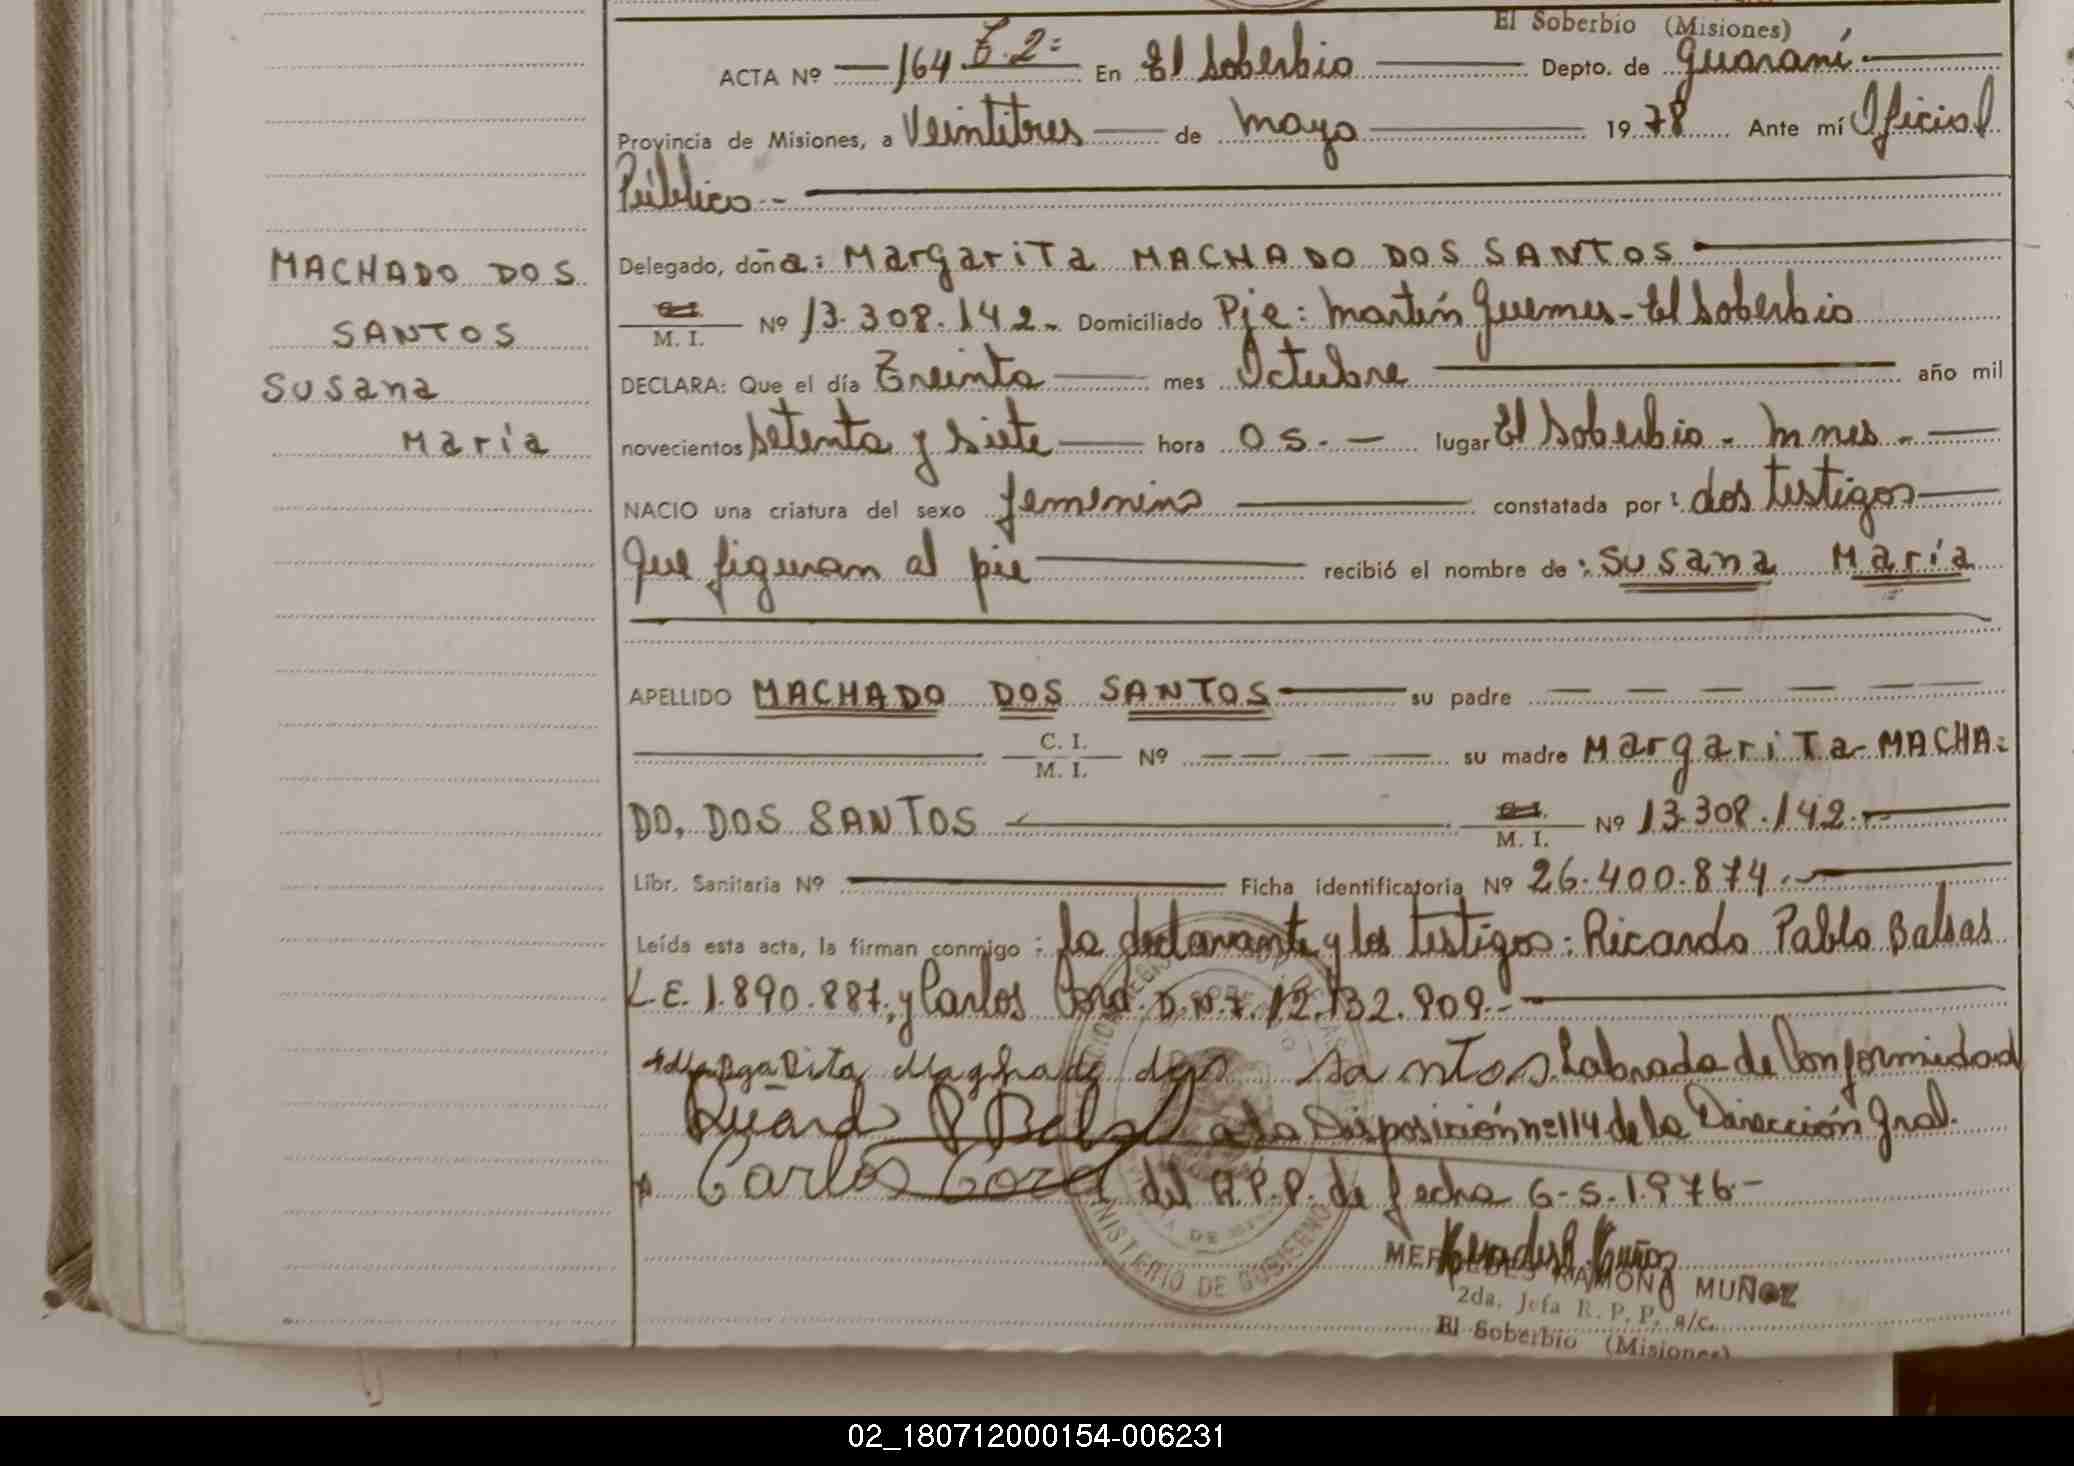 El Soberbio (Misiones)
ACTA Nº 164 T. 2= En El Soberbio Depto. de Guaraní
Provincia de Misiones, a Veintitres de mayo 1978 Ante mí Oficial
Público.-
MACHADO DOS
SANTOS
Susana
María
Delegado, doña: Margarita MACHADO DOS SANTOS
M. I. Nº 13.308.142.- Domiciliado Pje: Martín Guemes - El Soberbio
DECLARA: Que el día Treinta mes Octubre año mil
novecientos setenta y siete hora 05.- lugar El Soberbio - Mnes.-
NACIO una criatura del sexo femenino constatada por: dos testigos
que figuran al pie recibió el nombre de: Susana María
APELLIDO MACHADO DOS SANTOS su padre
C. I.
M. I. Nº su madre Margarita MACHA=
DO, DOS SANTOS M. I. Nº 13.308.142.-
Libr. Sanitaria Nº Ficha identificatoria Nº 26.400.874.-
Leída esta acta, la firman conmigo: la declarante y los testigos: Ricardo Pablo Balsas
L.E. 1.890.887, y Carlos D.N.I. 12.132.909.-
Margarita Maghado dos santos. Labrada de Conformidad
Ricard P Bals a la Disposición nº 114 de la Dirección Gral.
Carlos del R.P.P. de fecha 6-5-1976.-
MINISTERIO DE GOBIERNO
MERCEDES RAMONA MUÑOZ
2da. Jefa R. P. P. a/c.
El Soberbio (Misiones)
02_180712000154-006231